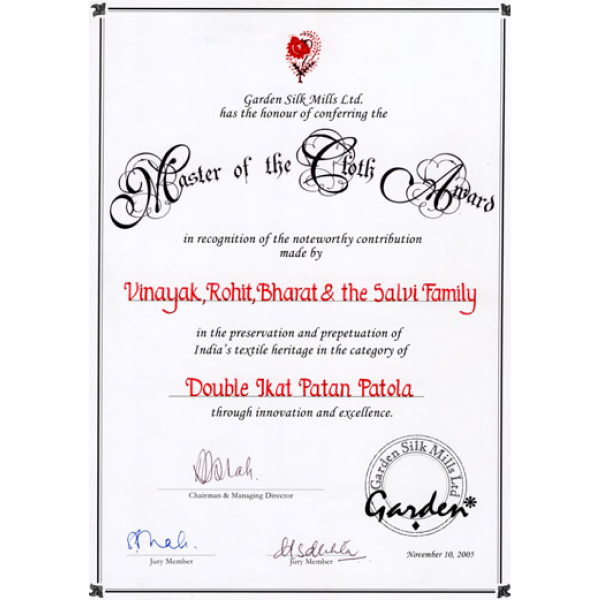 Garden Silk Mills Ltd.
has the honour of conferring the
Master of the Cloth Award
in recognition of the noteworthy contribution
made by
Vinayak, Rohit, Bharat & the Salvi Family
in the preservation and prepetuation of
India's textile heritage in the category of
Double Ikat Patan Patola
through innovation and excellence.
Chairman & Managing Director
Garden Silk Mills Ltd
Garden*
Jury Member
Jury Member
November 10, 2005